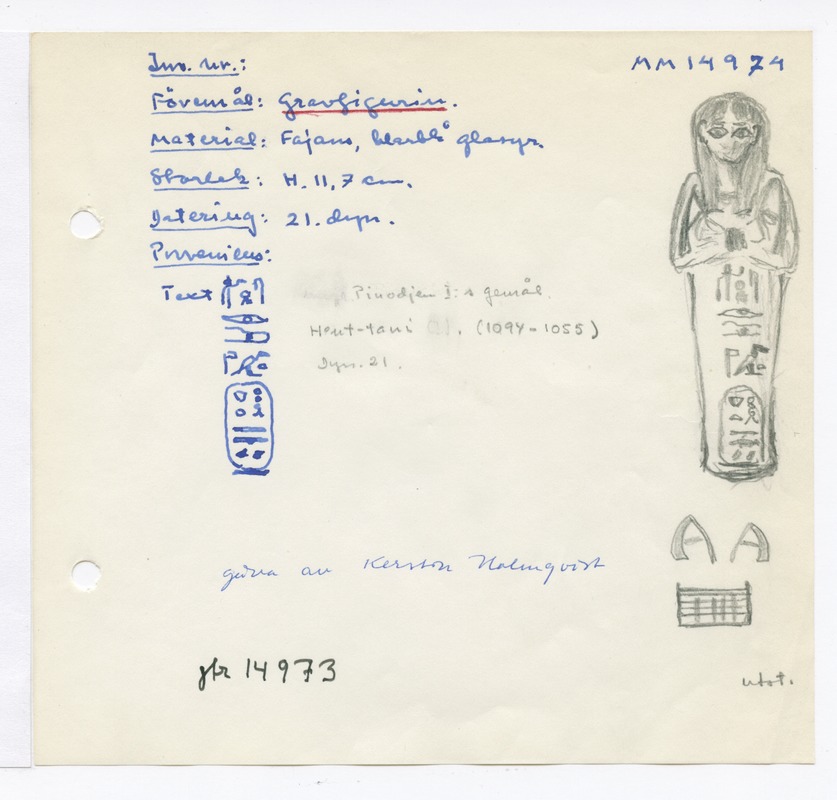 Inv. nr.: MM 14974
Föremål: Gravfigurin.
Material: Fajans, klarblå glasyr.
Storlek: H. 11,7 cm.
Datering: 21. dyn.
Proveniens:
Text
Pinodjem I:s gemål
Hent-taui . (1094-1055)
Dyn. 21.
gåva av Kerstin Holmqvist
jfr 14973
utst.